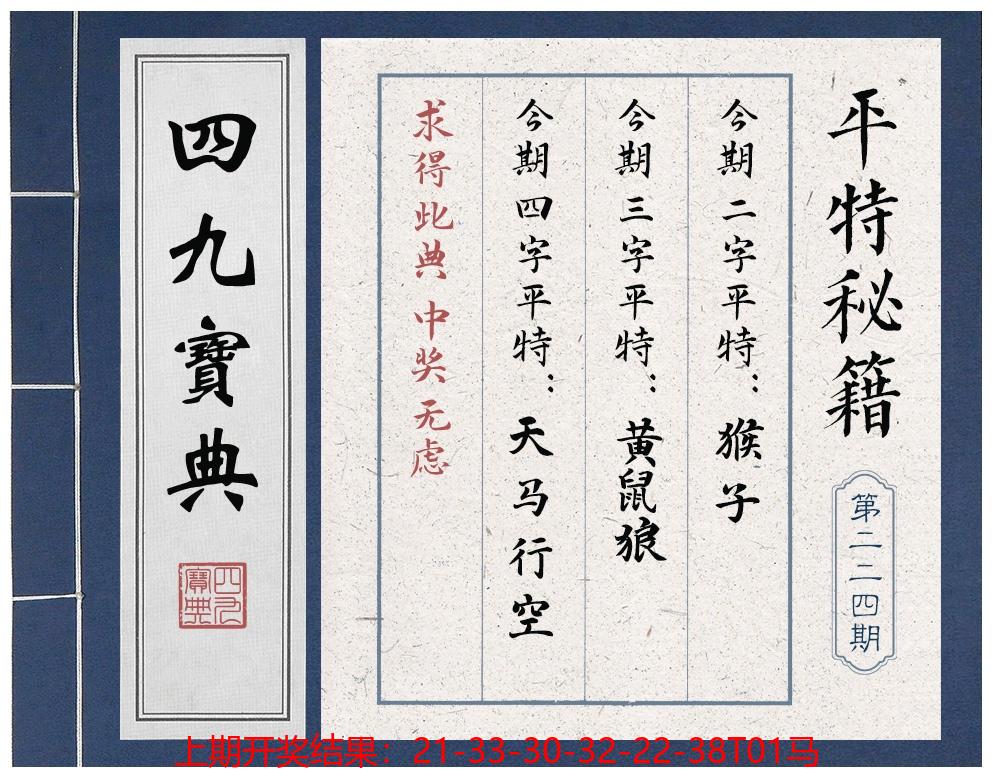 平特秘籍
第二二四期
今期二字平特：猴子
今期三字平特：黄鼠狼
今期四字平特：天马行空
求得此典 中奖无虑
四九寶典
四九寶典
上期开奖结果：21-33-30-32-22-38T01马